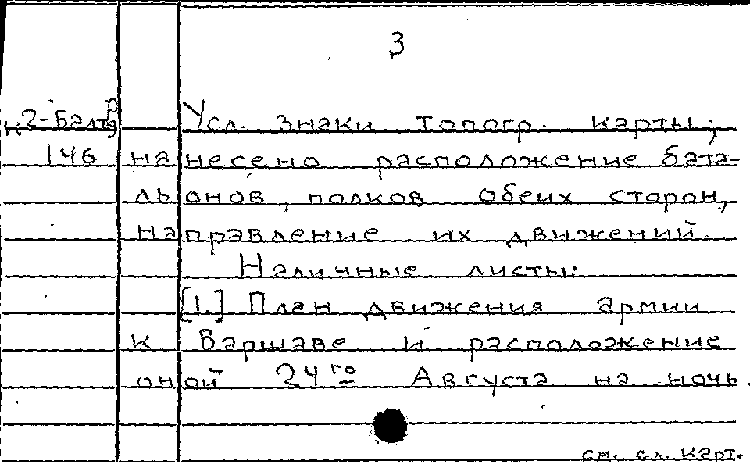 3
К2-Балтр
9
Усл. знаки топогр. карты;
146 нанесено расположение бата-
льонов, полков обеих сторон,
направление их движений.
Наличные листы:
[1.] План движения армии
к Варшаве и расположение
оной 24го Августа на ночь.
см. сл. карт.